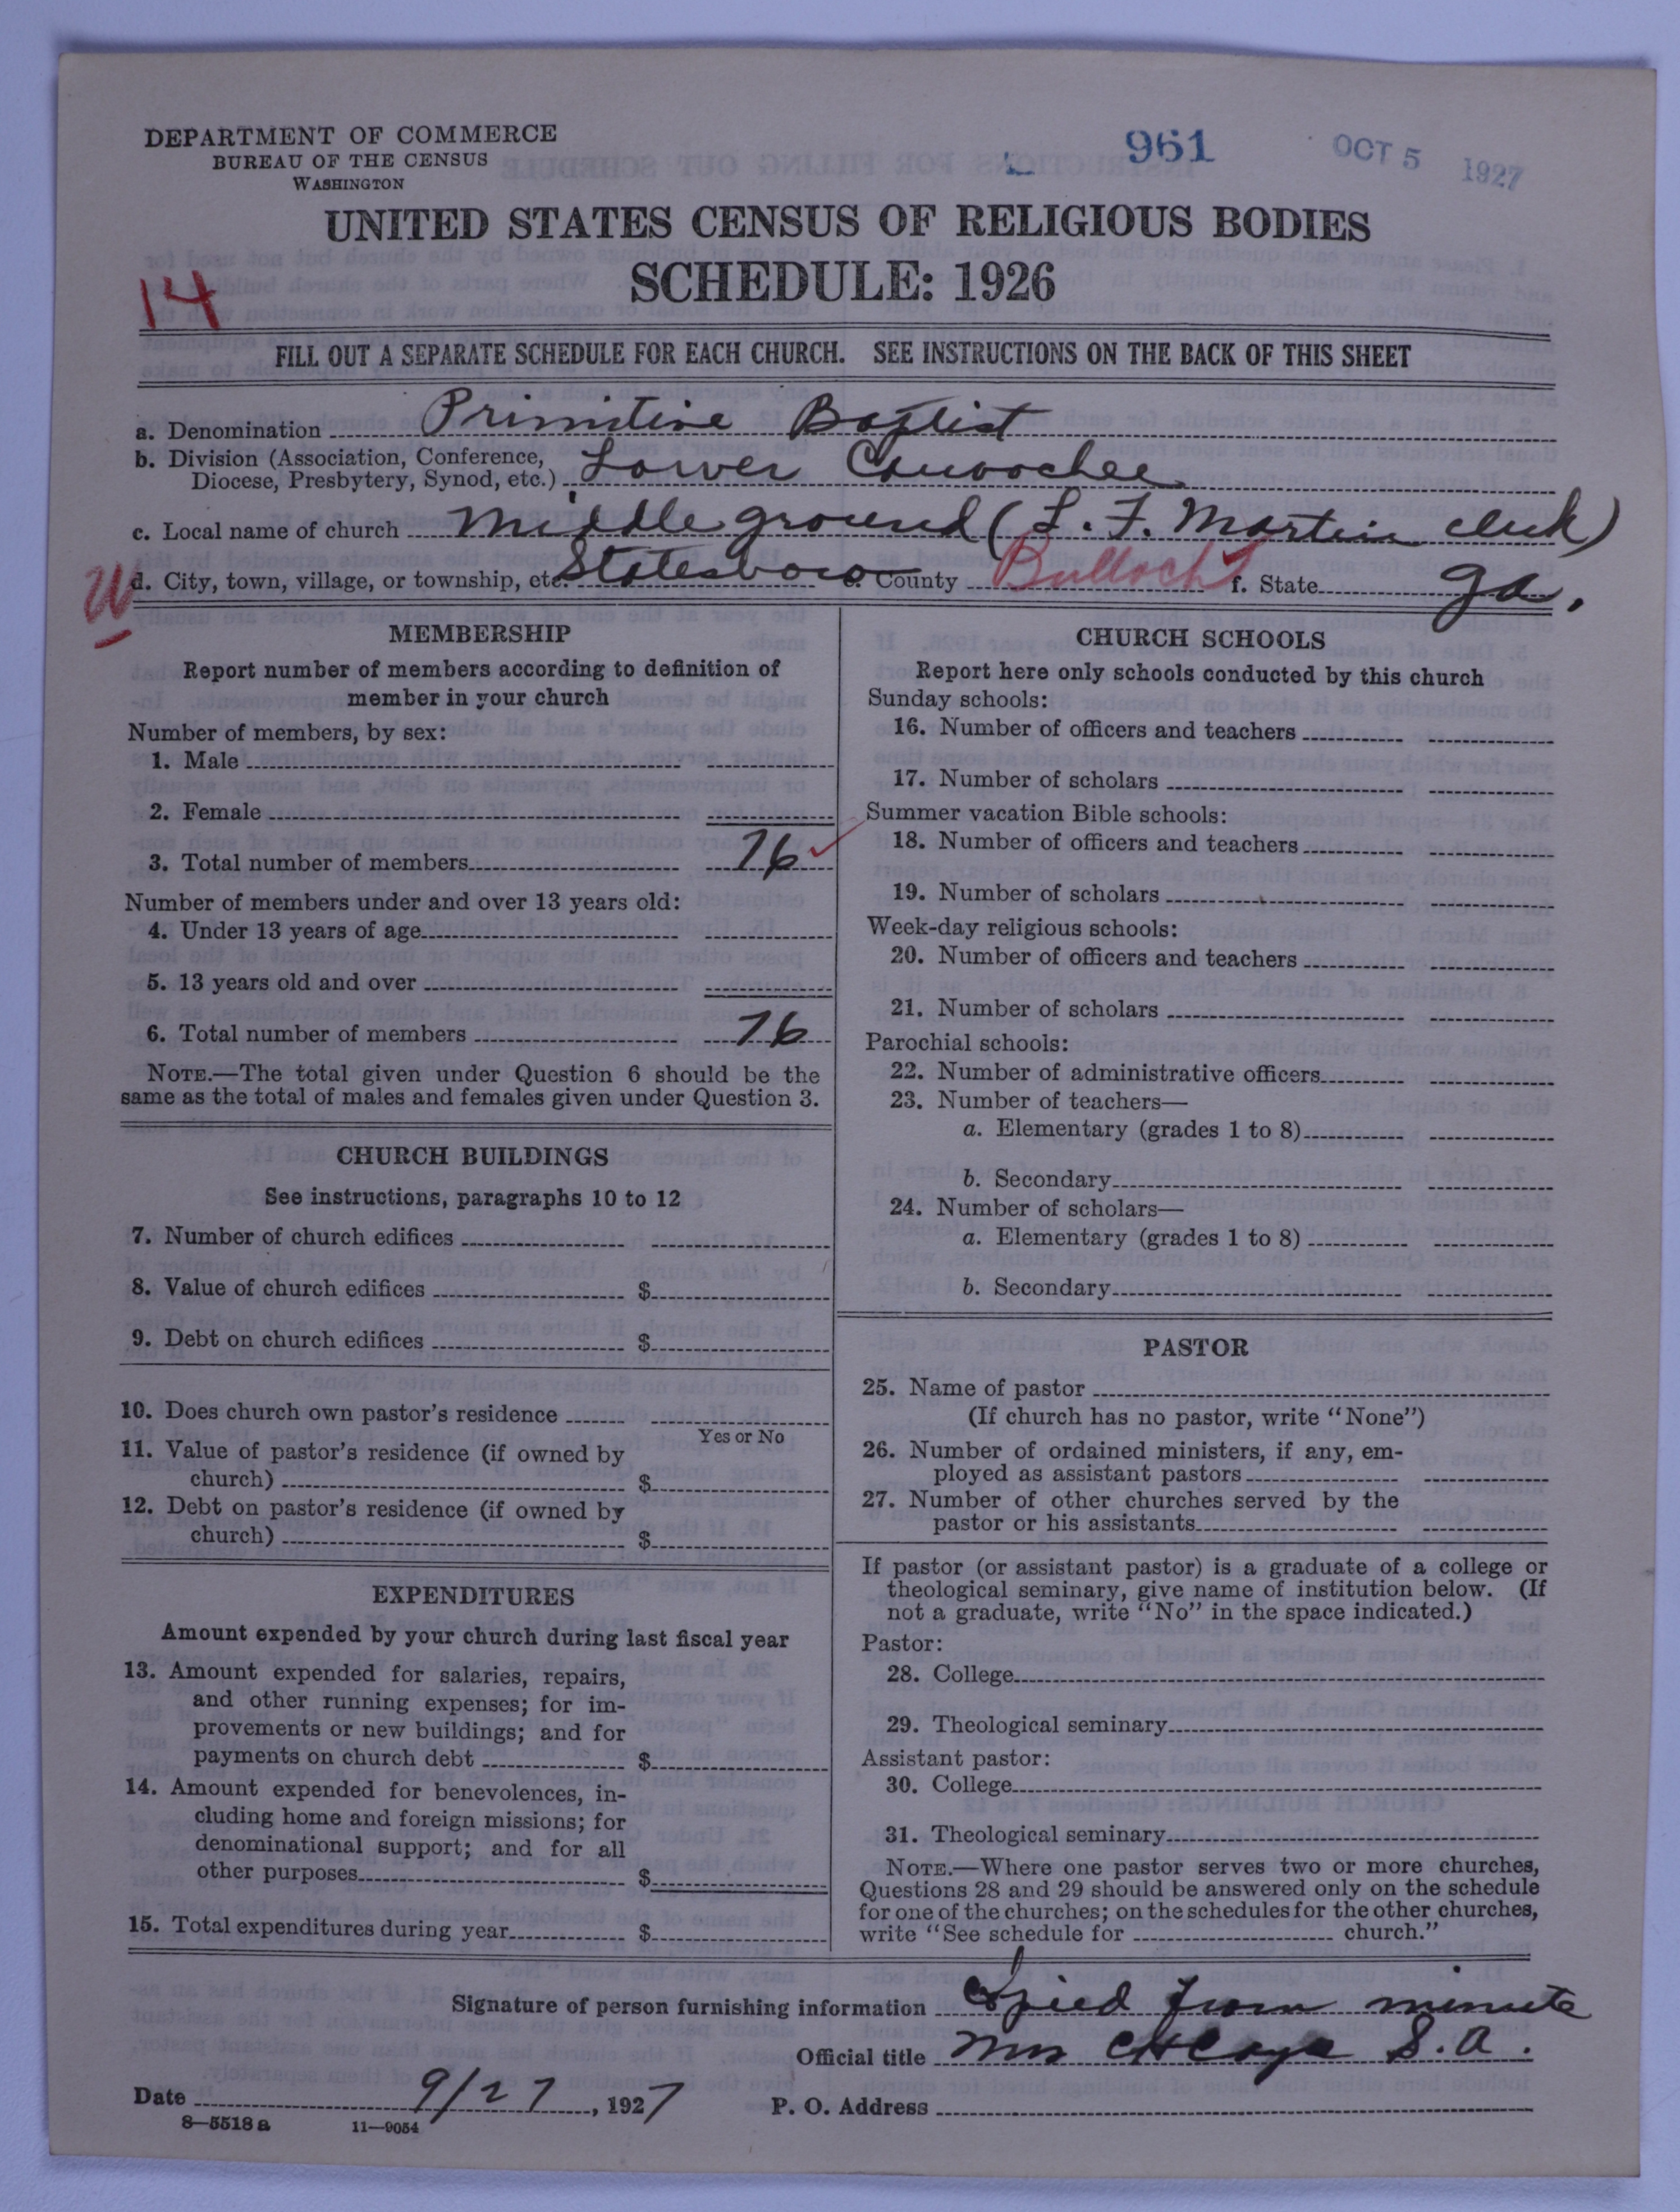 DEPARTMENT OF COMMERCE
BUREAU OF THE CENSUS
WASHINGTON
961
OCT 5 1927
UNITED STATES CENSUS OF RELIGIOUS BODIES
SCHEDULE: 1926
14
FILL OUT A SEPARATE SCHEDULE FOR EACH CHURCH. SEE INSTRUCTIONS ON THE BACK OF THIS SHEET
a. Denomination Primitive Baptist
b. Division (Association, Conference, Diocese, Presbytery, Synod, etc.) Lower Canoochee
c. Local name of church Middle ground (L. F. Martin clerk)
W d. City, town, village, or township, etc. Statesboro e. County Bulloch f. State Ga.
MEMBERSHIP
Report number of members according to definition of
member in your church
Number of members, by sex:
1. Male
2. Female
3. Total number of members 76
Number of members under and over 13 years old:
4. Under 13 years of age
5. 13 years old and over
6. Total number of members 76
NOTE.—The total given under Question 6 should be the
same as the total of males and females given under Question 3.
CHURCH BUILDINGS
See instructions, paragraphs 10 to 12
7. Number of church edifices
8. Value of church edifices $
9. Debt on church edifices $
10. Does church own pastor's residence
Yes or No
11. Value of pastor's residence (if owned by
church) $
12. Debt on pastor's residence (if owned by
church) $
EXPENDITURES
Amount expended by your church during last fiscal year
13. Amount expended for salaries, repairs,
and other running expenses; for im-
provements or new buildings; and for
payments on church debt $
14. Amount expended for benevolences, in-
cluding home and foreign missions; for
denominational support; and for all
other purposes $
15. Total expenditures during year $
CHURCH SCHOOLS
Report here only schools conducted by this church
Sunday schools:
16. Number of officers and teachers
17. Number of scholars
Summer vacation Bible schools:
18. Number of officers and teachers
19. Number of scholars
Week-day religious schools:
20. Number of officers and teachers
21. Number of scholars
Parochial schools:
22. Number of administrative officers
23. Number of teachers—
a. Elementary (grades 1 to 8)
b. Secondary
24. Number of scholars—
a. Elementary (grades 1 to 8)
b. Secondary
PASTOR
25. Name of pastor
(If church has no pastor, write "None")
26. Number of ordained ministers, if any, em-
ployed as assistant pastors
27. Number of other churches served by the
pastor or his assistants
If pastor (or assistant pastor) is a graduate of a college or
theological seminary, give name of institution below. (If
not a graduate, write "No" in the space indicated.)
Pastor:
28. College
29. Theological seminary
Assistant pastor:
30. College
31. Theological seminary
NOTE.—Where one pastor serves two or more churches,
Questions 28 and 29 should be answered only on the schedule
for one of the churches; on the schedules for the other churches,
write "See schedule for church."
Signature of person furnishing information Copied from minute
Official title Mrs S. A.
Date 9/27, 1927 P. O. Address
8—5518 a 11—9054